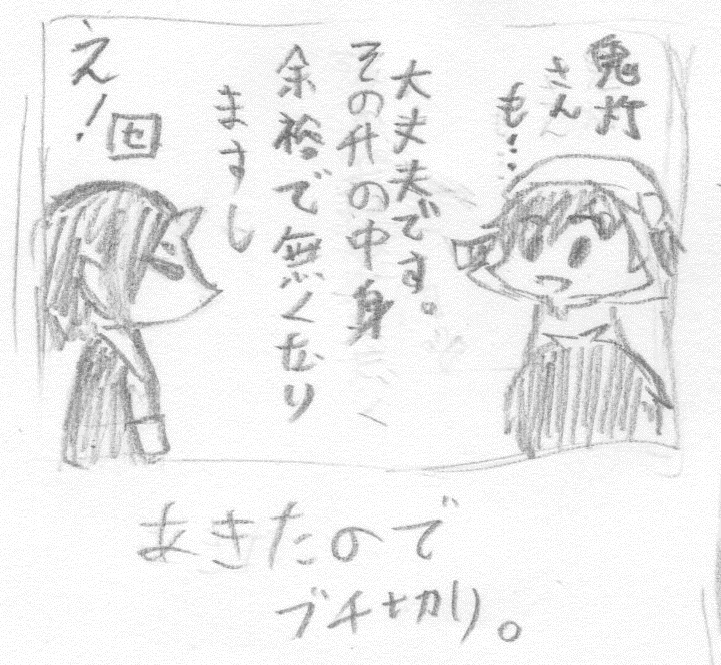 鬼灯
さん
も…
大丈夫です。
その升の中身
余裕で無くなり
ますし
え!
セ
あきたので
ブチ切り。